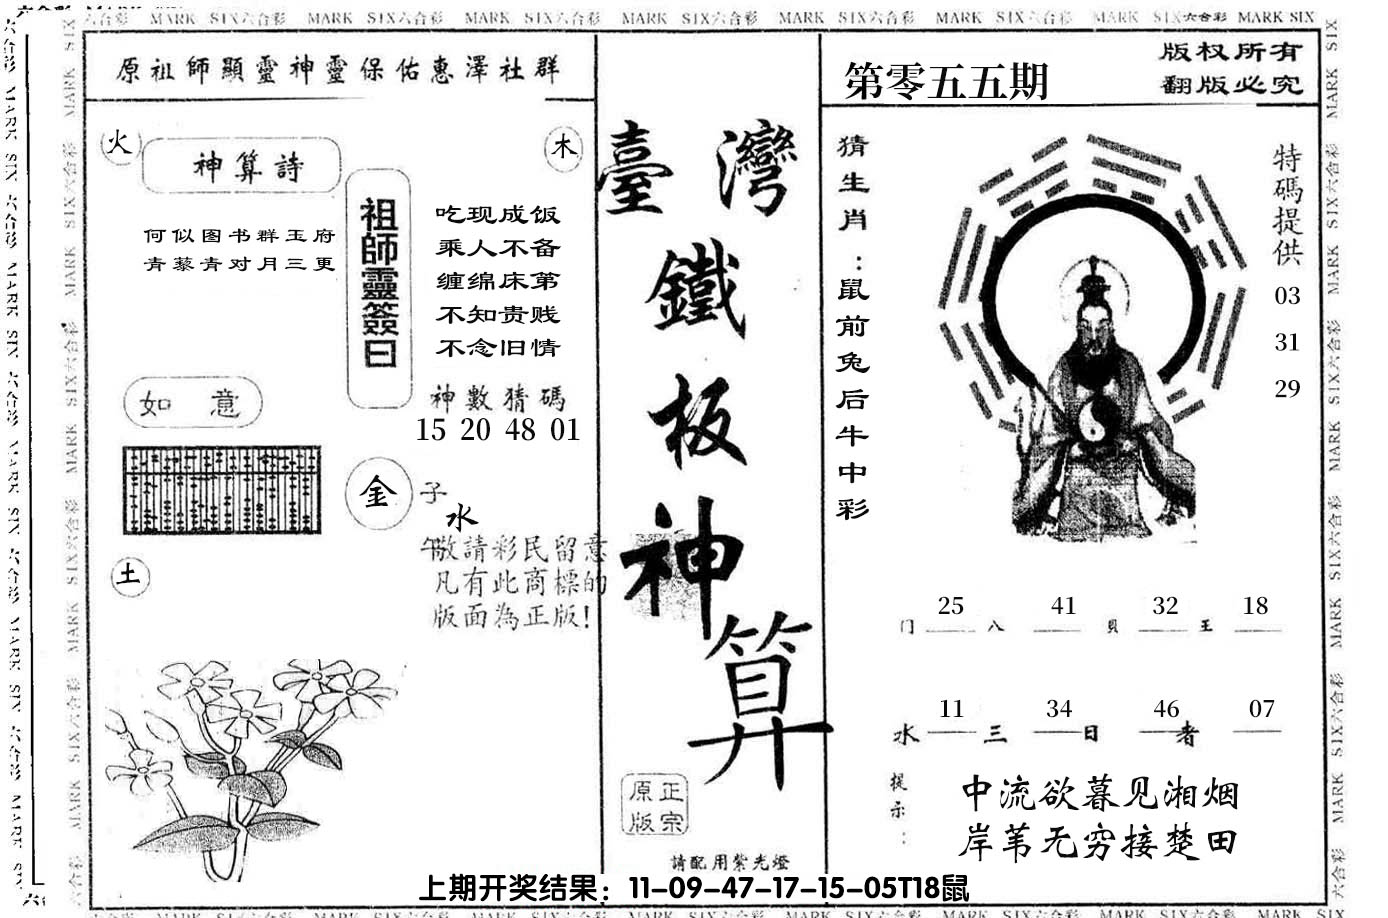 MARK SIX六合彩 MARK SIX六合彩 MARK SIX六合彩 MARK SIX六合彩 MARK SIX六合彩 MARK SIX六合彩 MARK SIX六合彩 MARK SIX
原祖師顯靈神靈保佑惠澤社群
火
木
神算詩
何似图书群玉府
青藜青对月三更
祖師靈簽曰
吃现成饭
乘人不备
缠绵床第
不知贵贱
不念旧情
如意
神數猜碼
15 20 48 01
金
子
水
午
敬請彩民留意
凡有此商標的
版面為正版!
土
臺灣
鐵
板
神
算
原正
版宗
請配用紫光燈
第零五五期
版权所有
翻版必究
猜生肖:鼠前兔后牛中彩
特碼提供
03
31
29
门 25 八 41 貝 32 王 18
水 11 三 34 日 46 者 07
提示:
中流欲暮见湘烟
岸苇无穷接楚田
上期开奖结果：11-09-47-17-15-05T18鼠